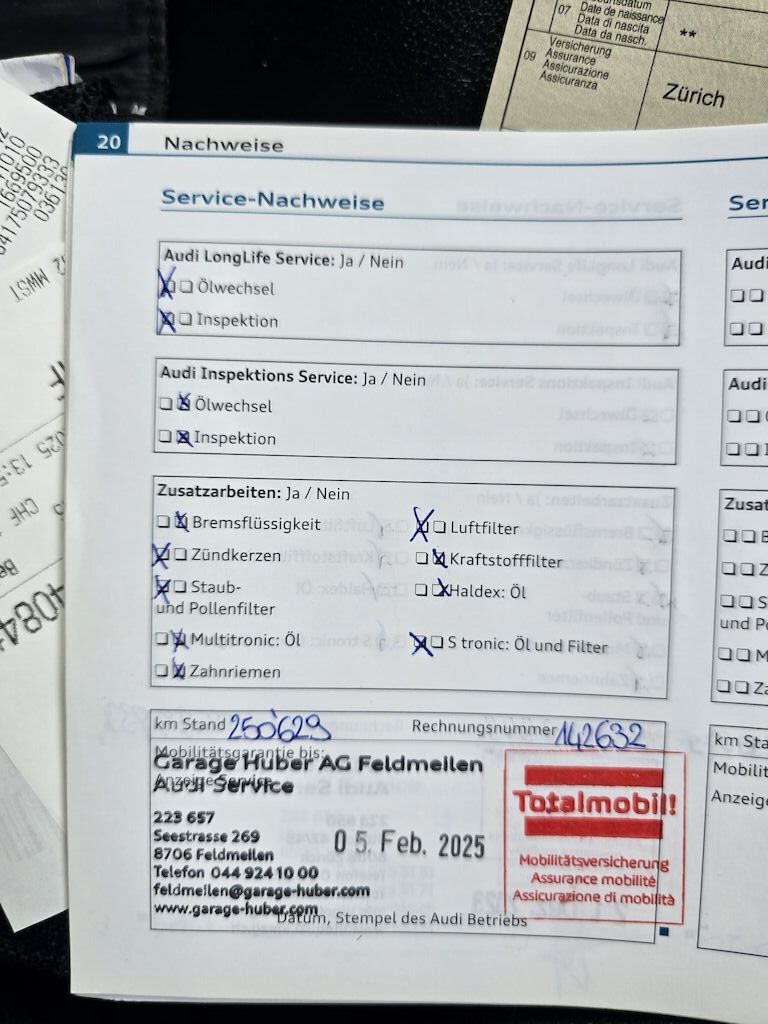 07 Date de naissance
Data di nascita
Data da nasch.
**
09 Versicherung
Assurance
Assicurazione
Assicuranza
Zürich
20 Nachweise
Service-Nachweise
Audi LongLife Service: Ja / Nein
Ölwechsel
Inspektion
Audi Inspektions Service: Ja / Nein
Ölwechsel
Inspektion
Zusatzarbeiten: Ja / Nein
Bremsflüssigkeit Luftfilter
Zündkerzen Kraftstofffilter
Staub- Haldex: Öl
und Pollenfilter
Multitronic: Öl S tronic: Öl und Filter
Zahnriemen
km Stand 250'629 Rechnungsnummer 142632
Mobilitätsgarantie bis:
Garage Huber AG Feldmeilen
Anzeige Service
Audi Service
223 657
Seestrasse 269
8706 Feldmeilen
Telefon 044 924 10 00
feldmeilen@garage-huber.com
www.garage-huber.com
05. Feb. 2025
Totalmobil!
Mobilitätsversicherung
Assurance mobilité
Assicurazione di mobilità
Datum, Stempel des Audi Betriebs
Audi
Audi
MWST
CHF